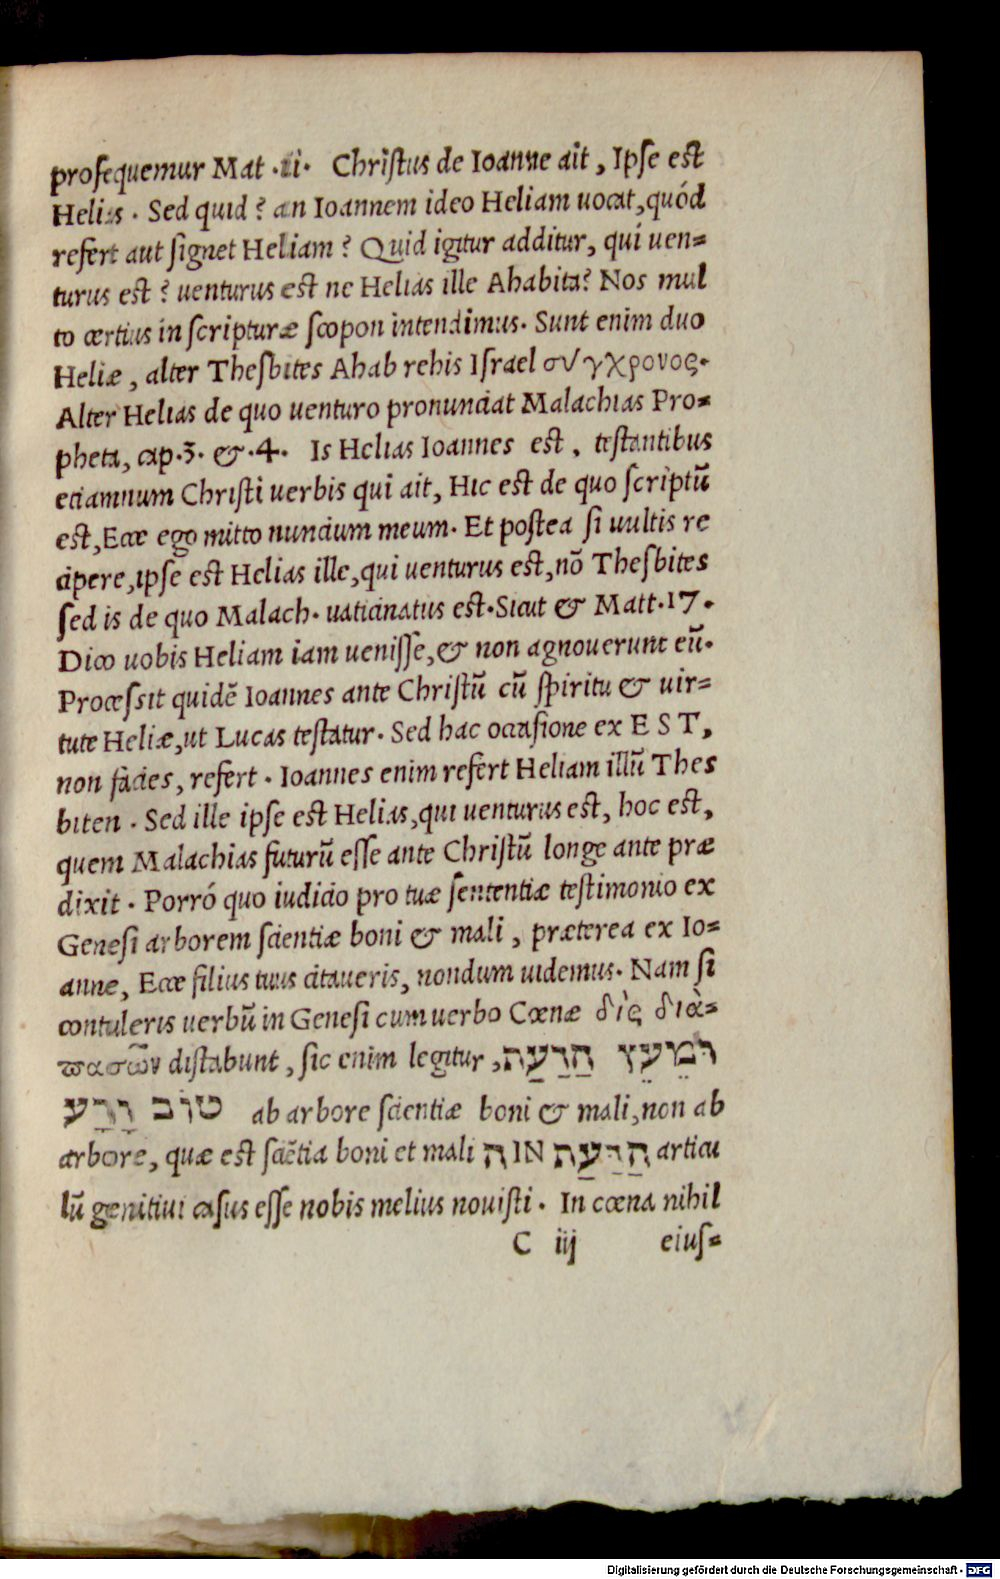 prosequemur Mat .ii. Christus de Ioanne ait, Ipse est
Helias. Sed quid? an Ioannem ideo Heliam uocat, quód
refert aut signet Heliam? Quid igitur additur, qui uen=
turus est? uenturus est ne Helias ille Ahabita? Nos mul
to certius in scripturæ scopon intendimus. Sunt enim duo
Heliæ, alter Thesbites Ahab rehis Israel σύγχρονος.
Alter Helias de quo uenturo pronunciat Malachias Pro=
pheta, cap.3. & .4. Is Helias Ioannes est, testantibus
etiamnum Christi uerbis qui ait, Hic est de quo scriptũ
est, Ecce ego mitto nuncium meum. Et postea si uultis re
cipere, ipse est Helias ille, qui uenturus est, nõ Thesbites
sed is de quo Malach. uaticinatus est. Sicut & Matt.17.
Dico uobis Heliam iam uenisse, & non agnouerunt eũ.
Processit quidẽ Ioannes ante Christũ cũ spiritu & uir=
tute Heliæ, ut Lucas testatur. Sed hac occasione ex EST,
non facies, refert. Ioannes enim refert Heliam illũ Thes
biten. Sed ille ipse est Helias, qui uenturus est, hoc est,
quem Malachias futurũ esse ante Christũ longe ante præ
dixit. Porró quo iudicio pro tuæ sententiæ testimonio ex
Genesi arborem scientiæ boni & mali, præterea ex Io=
anne, Ecce filius tuus citaueris, nondum uidemus. Nam si
contuleris uerbũ in Genesi cum uerbo Cœnæ δὶς διὰ=
ϖασῶν distabunt, sic enim legitur, וּמֵעֵץ הַדַּעַת
טוֹב וָרַע ab arbore scientiæ boni & mali, non ab
arbore, quæ est sciẽtia boni et mali ה IN הַדַּעַת articu
lũ genitiui casus esse nobis melius nouisti. In cœna nihil
C iij eius=
Digitalisierung gefördert durch die Deutsche Forschungsgemeinschaft - DFG